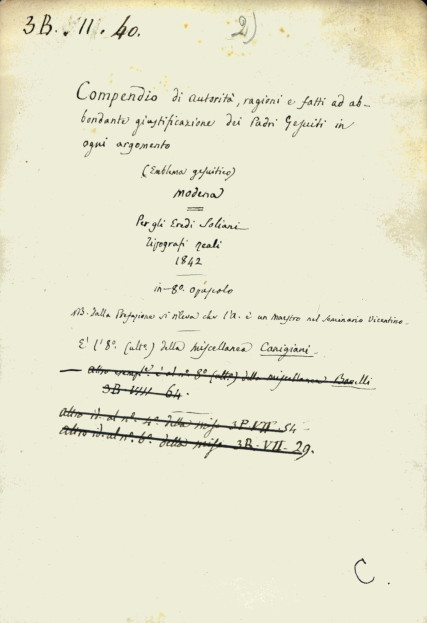 3B. II. 40.
2)
Compendio di autorità, ragioni e fatti ad ab-
bondante giustificazione dei Padri Gesuiti in
ogni argomento
(Emblema gesuitico)
Modena
Per gli Eredi Soliani
Tipografi reali
1842
in-8º. opuscolo
NB. dalla Prefazione si rileva che l'A. è un Maestro nel Seminario Vicentino.
E' l'8º. (ulto.) della miscellanea Canigiani.
altro è al nº 8º (ulto) della miscellanea
3B VIII 64.
altro id. al nº. 4º. della misc. 54
altro id. al nº. 6º. della misc. 3B-VII-29.
C.